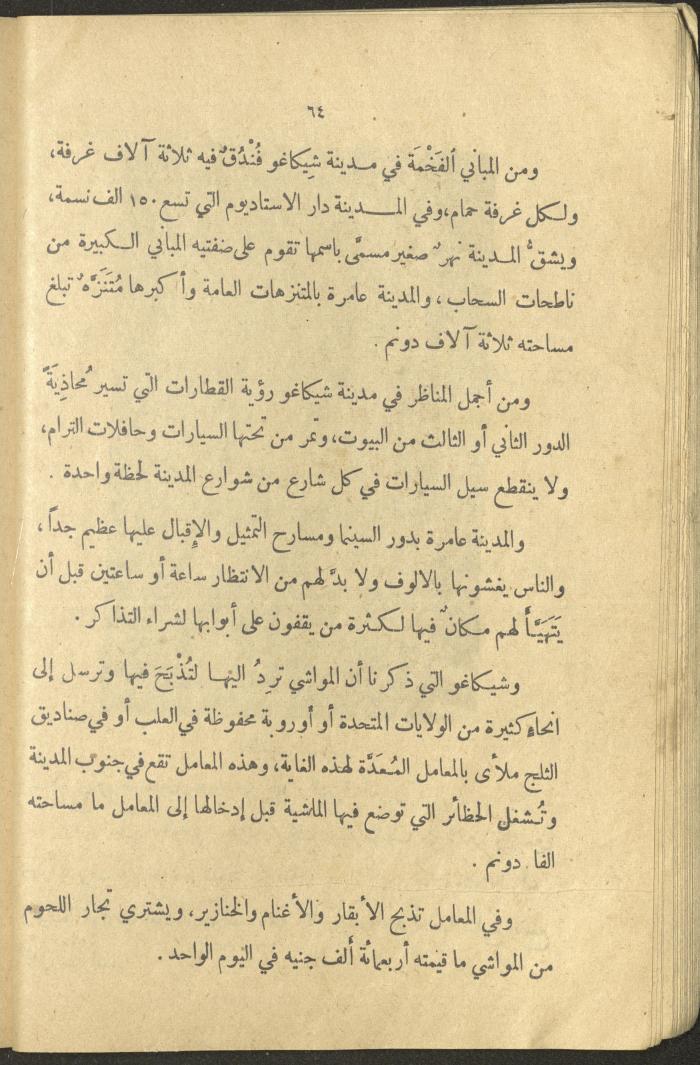 ٦٤
ومن المباني ٱلفَخْمَة في مدينة شِيكاغو فُنْدُقٌ فيه ثلاثة آلاف غرفة،
ولكل غرفة حمام، وفي المدينة دار الاستاديوم التي تسع ١٥٠ الف نسمة،
ويشقُّ المدينة نهرٌ صغير مسمًّى باسمها تقوم على ضفتيه المباني الكبيرة من
ناطحات السحاب، والمدينة عامرة بالمتنزهات العامة وأكبرها مُتَنَزَّهٌ تبلغ
مساحته ثلاثة آلاف دونم .
ومن أجمل المناظر في مدينة شيكاغو رؤية القطارات التي تسير مُحاذِيَةً
الدور الثاني أو الثالث من البيوت، وتمر من تحتها السيارات وحافلات الترام،
ولا ينقطع سيل السيارات في كل شارع من شوارع المدينة لحظة واحدة .
والمدينة عامرة بدور السينما ومسارح التمثيل والإقبال عليها عظيم جداً،
والناس يغشونها بالالوف ولا بدَّ لهم من الانتظار ساعة أو ساعتين قبل أن
يَتَهَيَّأَ لهم مكانٌ فيها لكثرة من يقفون على أبوابها لشراء التذاكر .
وشيكاغو التي ذكرنا أن المواشي تردُ اليها لتُذْبَحَ فيها وترسل إلى
انحاء كثيرة من الولايات المتحدة أو أوروبة محفوظة في العلب أو في صناديق
الثلج ملأى بالمعامل المُعَدَّة لهذه الغاية، وهذه المعامل تقع في جنوب المدينة
وتُشغل الحظائر التي توضع فيها الماشية قبل إدخالها إلى المعامل ما مساحته
الفا دونم .
وفي المعامل تذبح الأبقار والأغنام والخنازير، ويشتري تجار اللحوم
من المواشي ما قيمته أربعمائة ألف جنيه في اليوم الواحد .